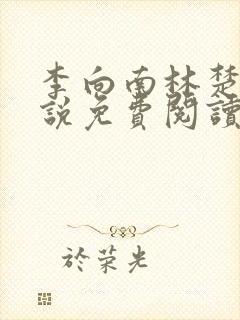 李向南林楚
說免費閱讀
於荣光